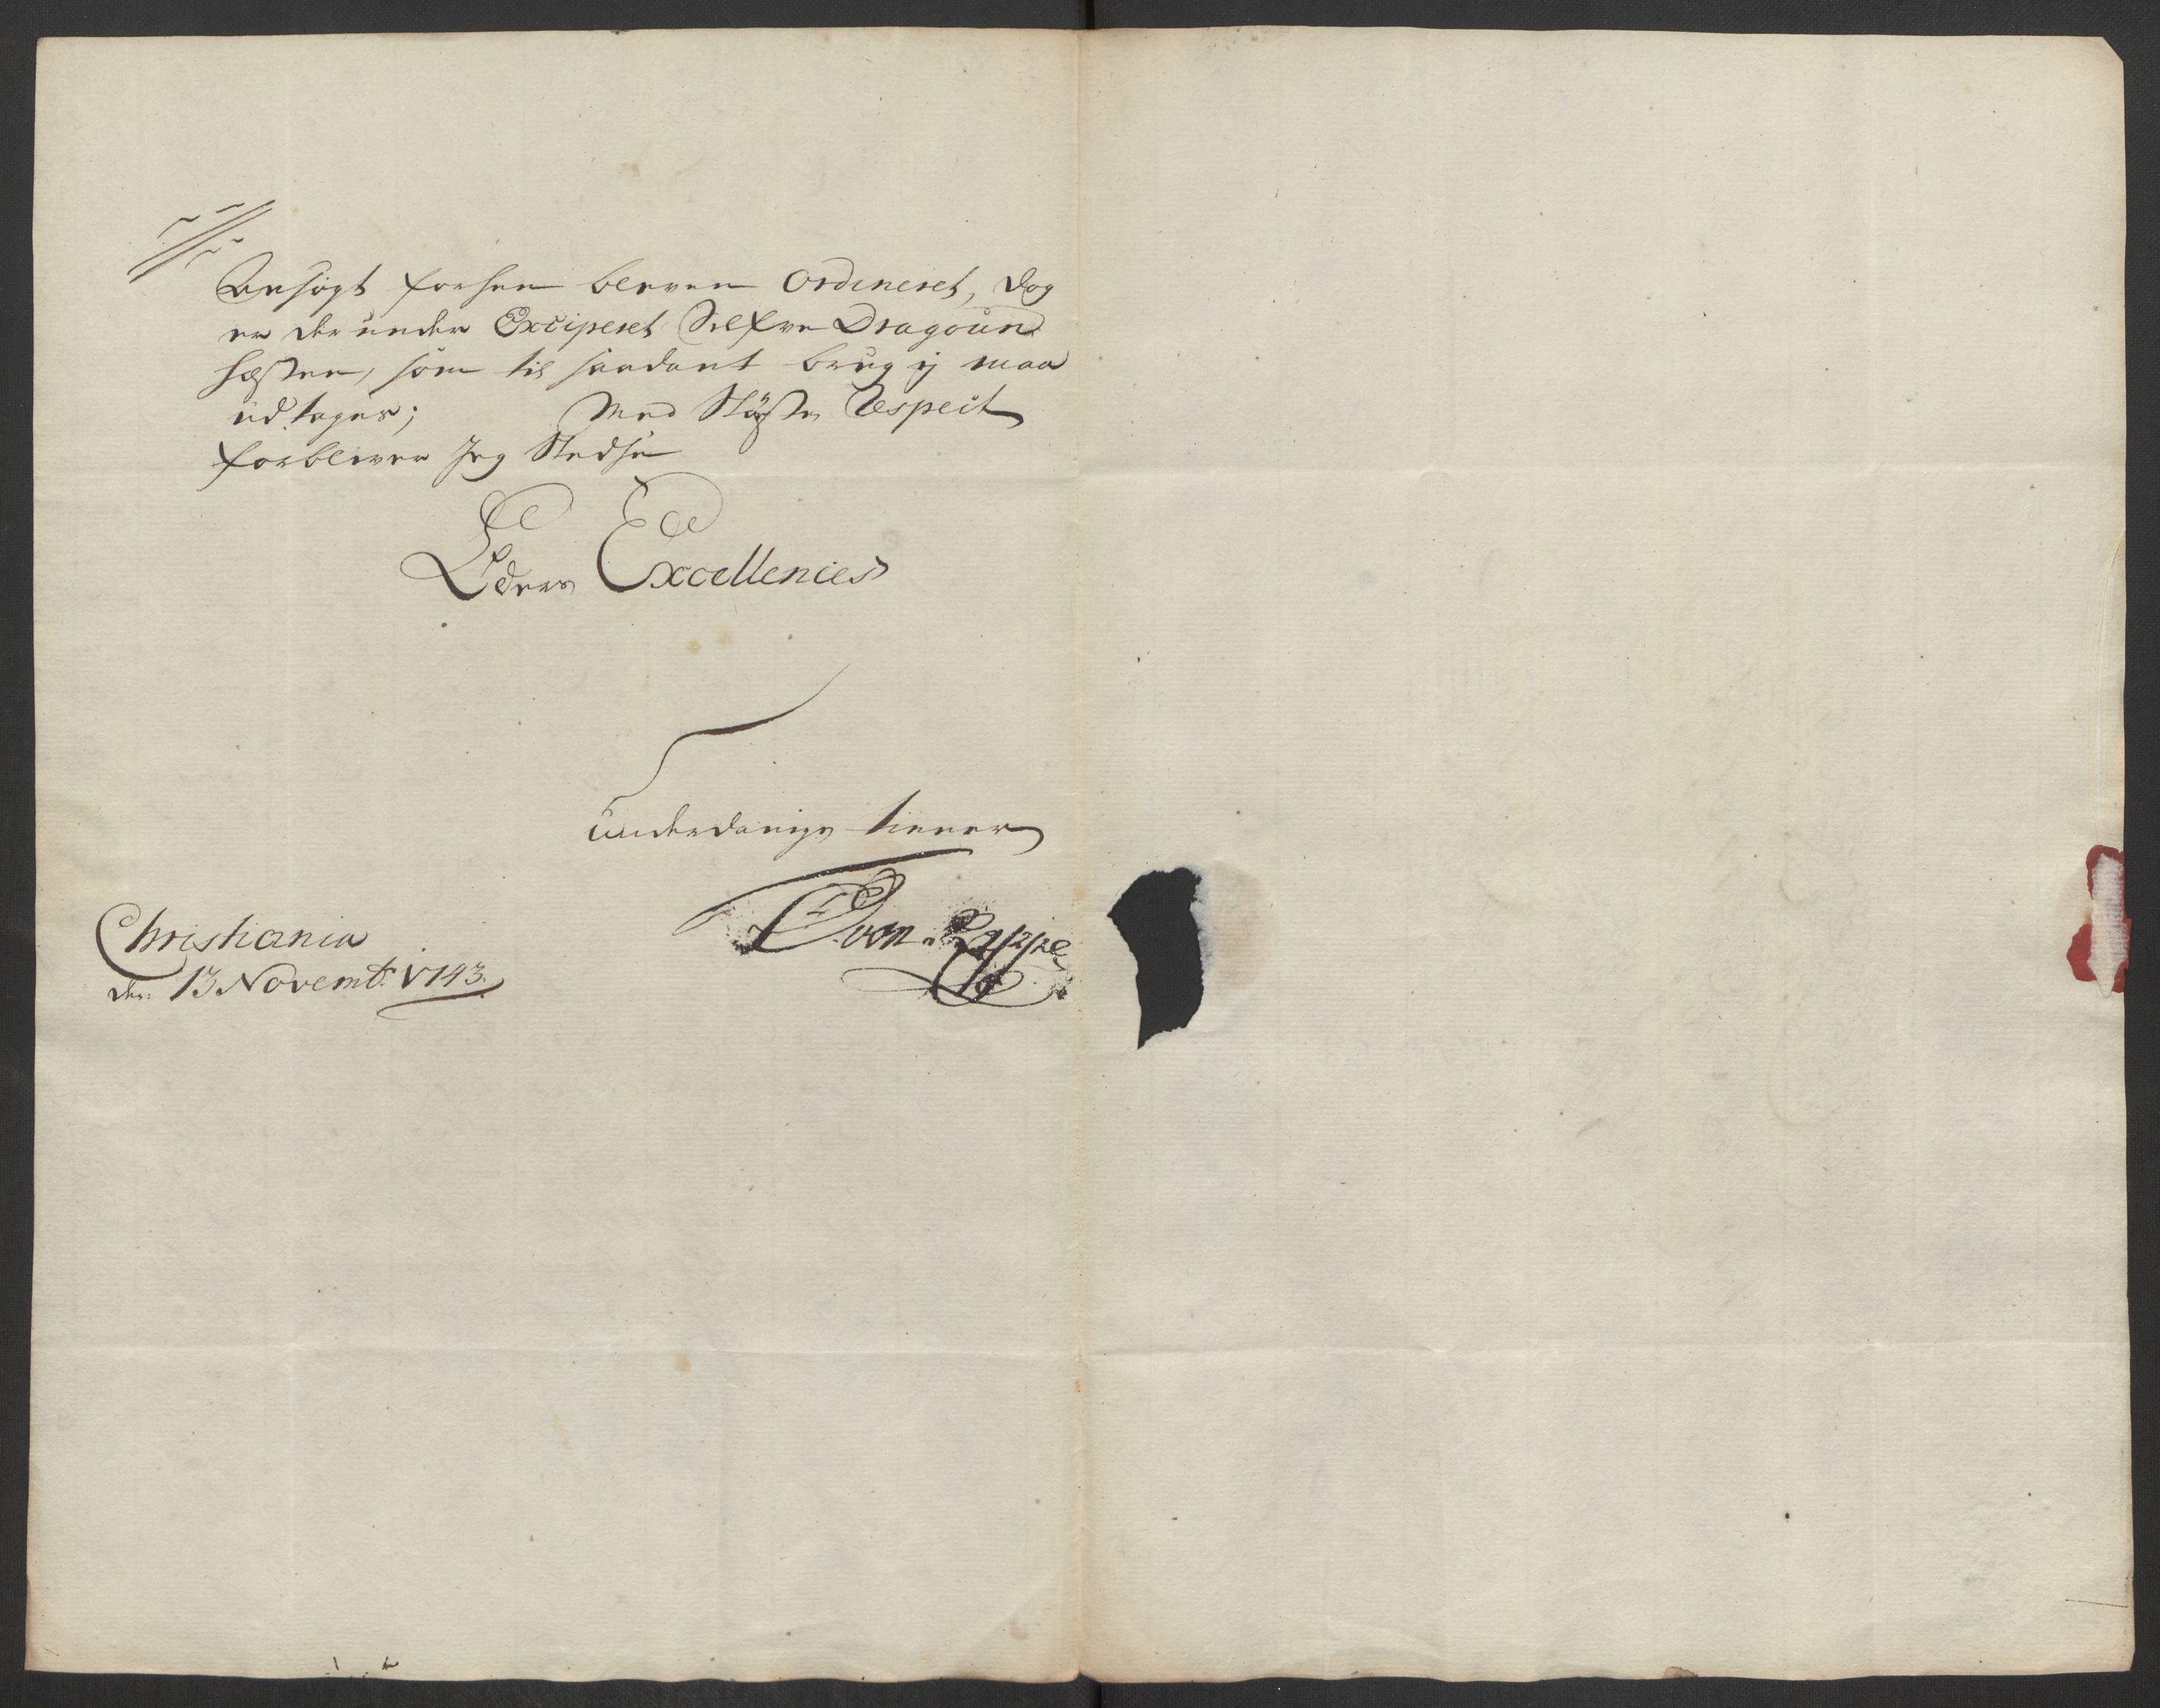 Ansøgt forhen bleven Ordineret, dog
er der under Exciperet Selfve Dragoun
hæsten, som til saadant brug ej maa
udtages; Med Største Respect
forbliver Jeg Stedse
Eders Excellences
underdanige tiener
von
Christiania
den: 13 Novembr. 1743.